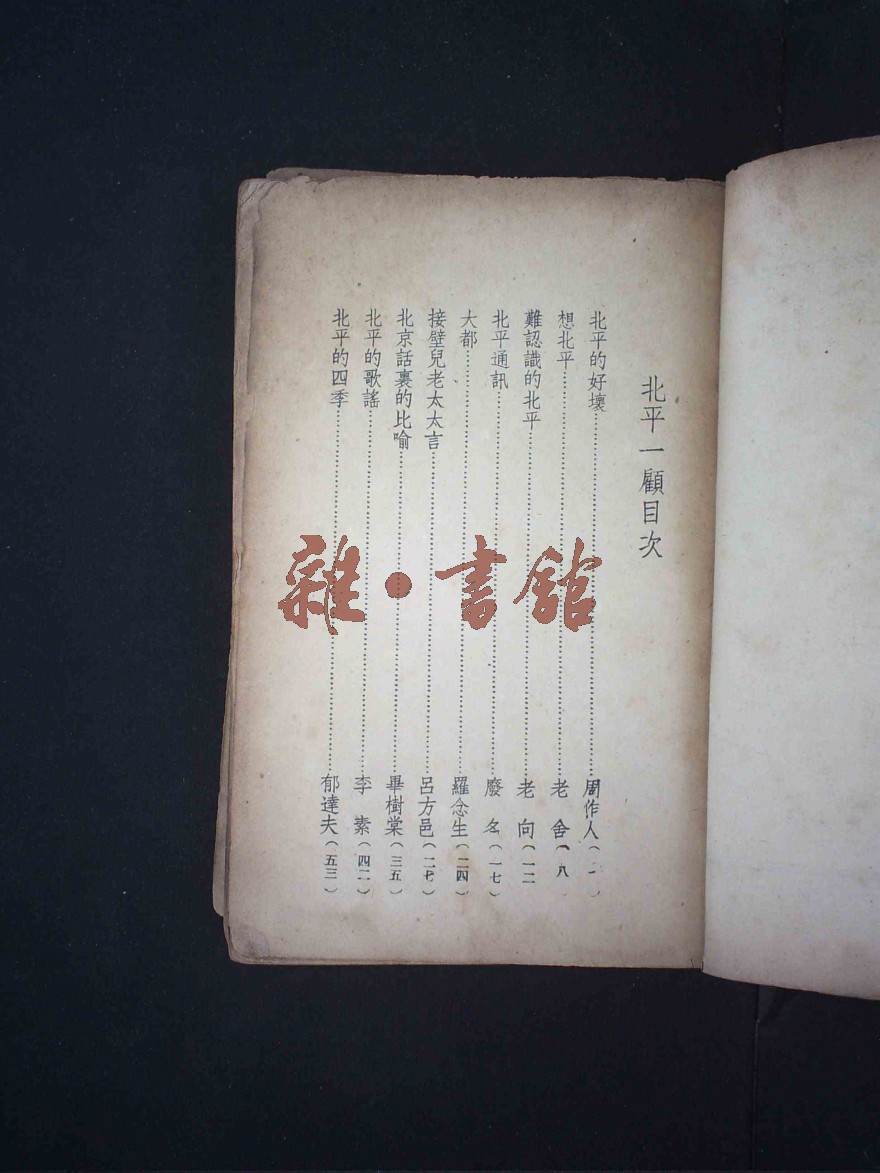 北平一顧目次
北平的好壞……周作人（一）
想北平……老舍（八）
難認識的北平……老向（一二
北平通訊……廢名（一七）
大都……羅念生（二四）
接壁兒老太太言……呂方邑（二七）
北京話裏的比喻……畢樹棠（三五）
北平的歌謠……李素（四二）
北平的四季……郁達夫（五三）
雜·書館